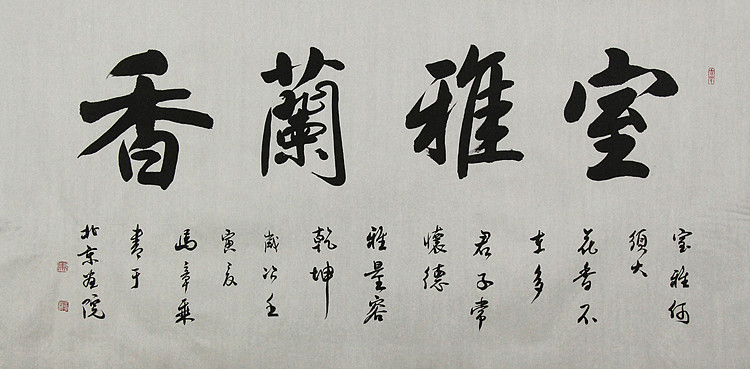 室雅蘭香
室雅何
須大
花香不
在多
君子常
懷德
雅量容
乾坤
歲次壬
寅夏
馮章乘
書于
北京畫院